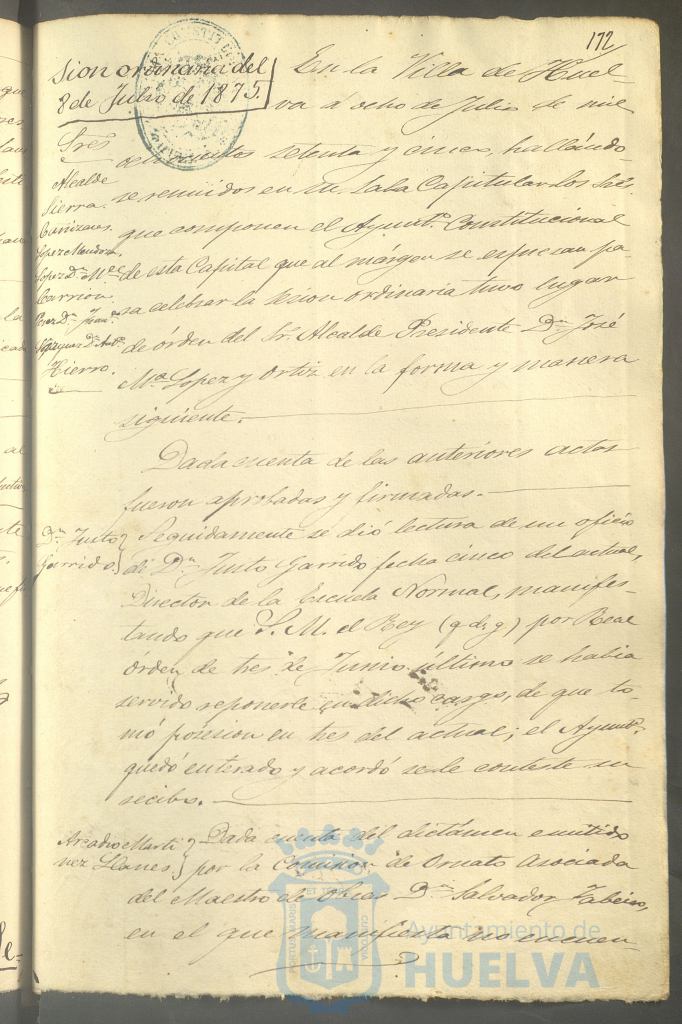 172
sion ordinaria del
8 de Julio de 1875.
Sres
Alcalde
Sierra.
Cañizares
Lopez Mendoza
Lopez Dn. Ml.
Carrion.
Perez Dn. Juan
Vazquez Dn. Anto.
Hierro.
En la Villa de Huel-
va á ocho de Julio de mil
ochocientos setenta y cinco, hallándo-
se reunidos en su Sala Capitular los Sres.
que componen el Ayuntº. Constitucional
de esta Capital que al márgen se espresan pa-
ra celebrar la sesion ordinaria tuvo lugar
de órden del Sr. Alcalde Presidente Dn. José
Mª Lopez y Ortiz en la forma y manera
siguiente.
Dada cuenta de las anteriores actas
fueron aprobadas y firmadas.
Dn. Justo
Garrido.
Seguidamente se dió lectura de un oficio
de Dn. Justo Garrido fecha cinco del actual,
Director de la Escuela Normal, manifes-
tando que S. M. el Rey (q. d. g.) por Real
órden de tres de Junio último se habia
servido reponerle en dicho cargo, de que to-
mó posesion en tres del actual; el Ayuntº.
quedó enterado y acordó se le conteste su
recibo.
Arcadio Marti
nez Llanes
Dada cuenta del dictámen emitido
por la Comision de Ornato Asociada
del Maestro de Obras Dn. Salvador
en el que manifiesta no encuen-
Ayuntamiento de
HUELVA